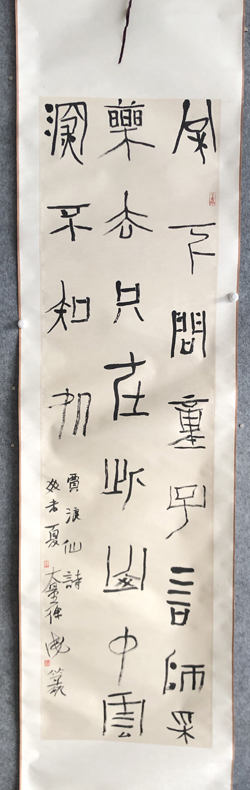 松下問童子言師采
藥去只在此山中雲
深不知処
賈浪仙詩
夏
篆